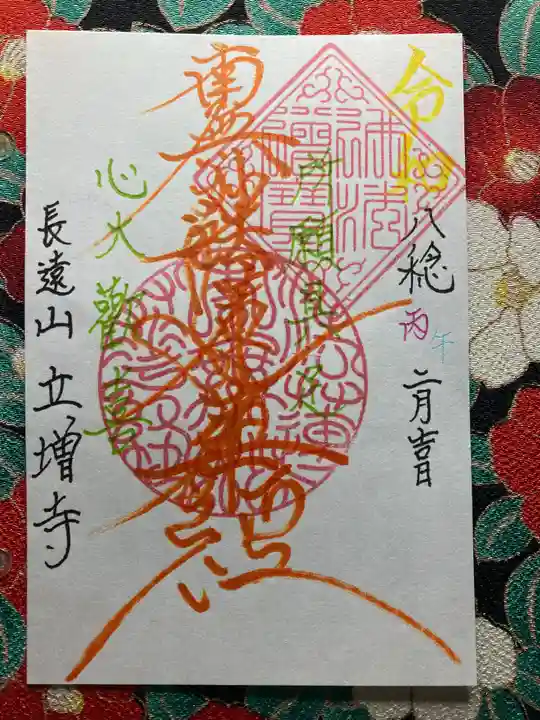 令和
八稔
丙午
二月吉日
所願具足
南無妙法蓮華経
心大歓喜
長遠山 立増寺